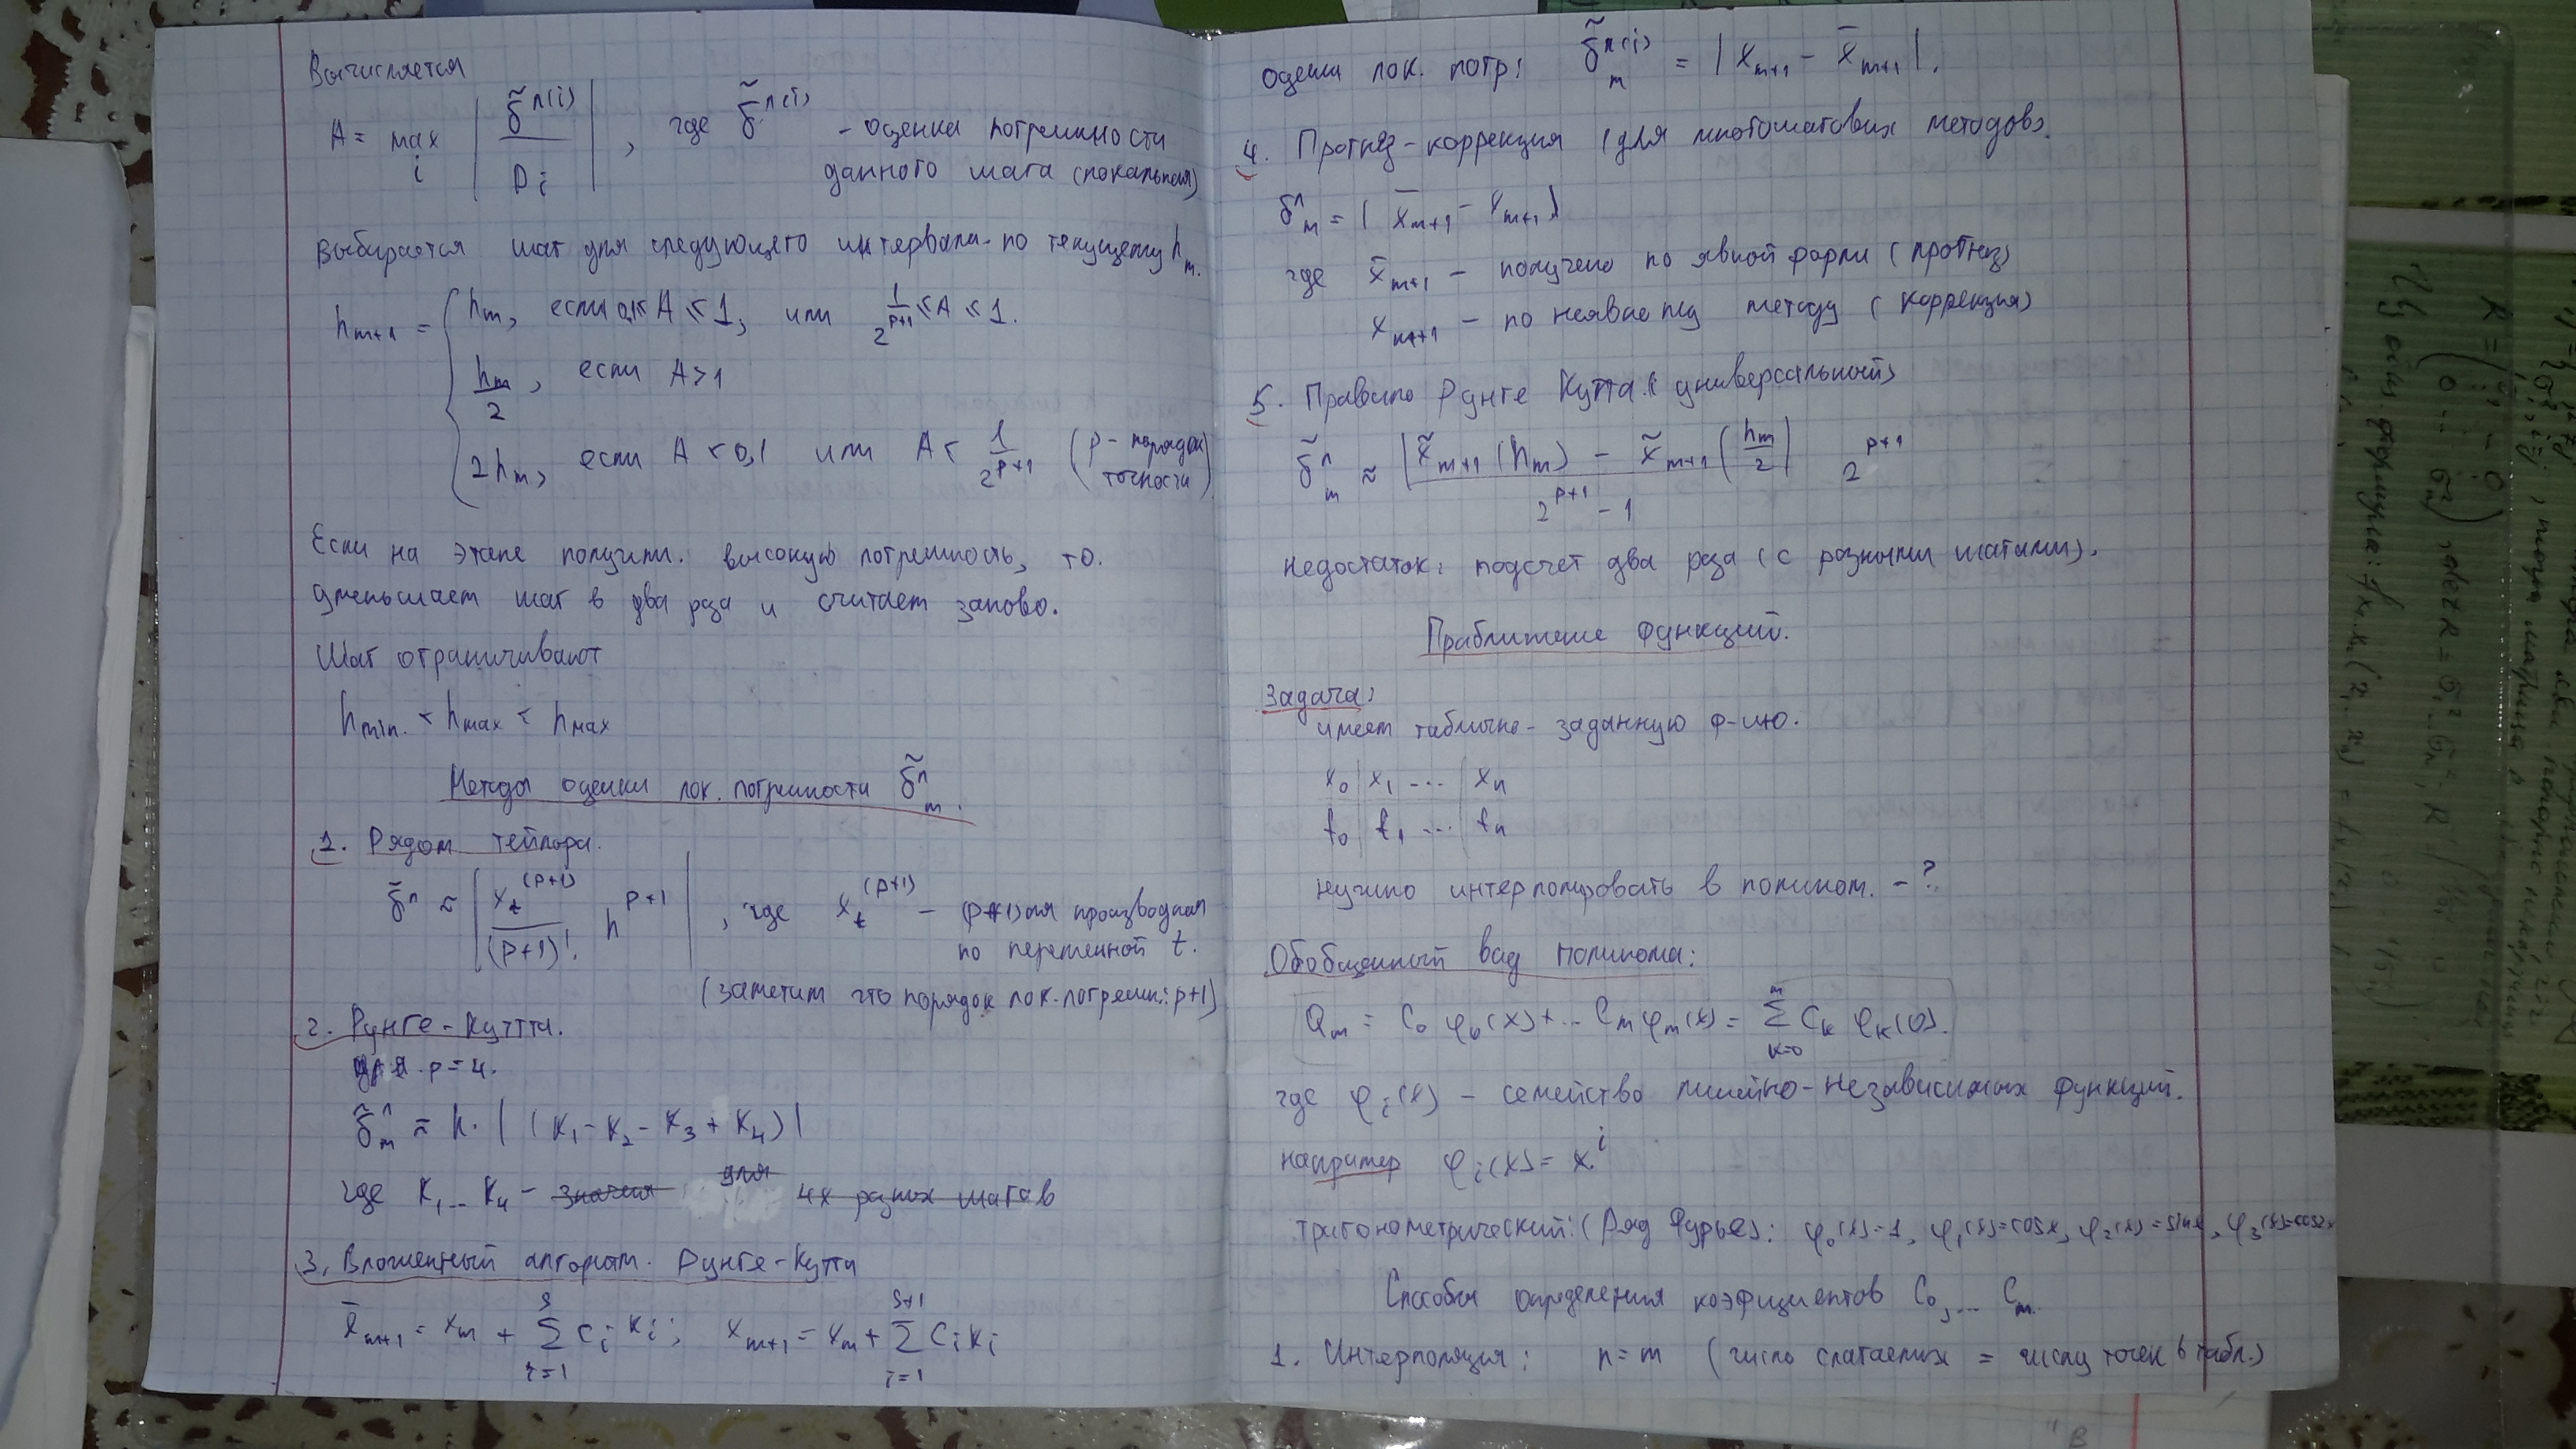 Вычисляется
A = max_i | δ̃^{л(i)} / P_i | , где δ̃^{л(i)} - оценка погрешности
данного шага (локальная)
Выбирается шаг для следующего интервала по текущему h_m.
h_{m+1} = { h_m, если 0,1 ≤ A ≤ 1, или 1/2^{p+1} ≤ A ≤ 1.
h_m/2, если A > 1
2h_m, если A < 0,1 или A < 1/2^{p+1} (p - порядок точности)
Если на этапе получим. высокую погрешность, то.
уменьшает шаг в два раза и считает заново.
Шаг ограничивают
h_min. < h_max < h_max
Методы оценки лок. погрешности δ̃^л_m.
1. Рядом тейлора.
δ̃^л ≈ | x_t^{(p+1)} / (p+1)! h^{p+1} | , где x_t^{(p+1)} - (p+1)ая производная
по переменной t.
(заметим что порядок лок. погрешн: p+1)
2. Рунге-Кутта.
для. p=4.
δ̃^л_m ≈ h · | (K_1 - K_2 - K_3 + K_4) |
где K_1.. K_4 - для 4х разных шагов
3. Вложенный алгоритм. Рунге-Кутта
x̄_{m+1} = x_m + Σ_{i=1}^{s} C_i K_i; x_{m+1} = x_m + Σ_{i=1}^{s+1} C_i K_i
Оценки лок. погр: δ̃^{л(i)}_m = | x_{m+1} - x̄_{m+1} |.
4. Прогноз-коррекция (для многошаговых методов)
δ^л_m = | x̄_{m+1} - x_{m+1} |
где x̄_{m+1} - получено по явной форме (прогноз)
x_{m+1} - по неявному методу (коррекция)
5. Правило Рунге Кутта (универсальный)
δ̃^л_m ≈ | x̃_{m+1}(h_m) - x̃_{m+1}(h_m/2) | / 2^{p+1} - 1 2^{p+1}
Недостаток: подсчет два раза (с разными шагами),
Приближение функций.
Задача:
имеем таблично-заданную ф-цию.
x_0 | x_1 ... | x_n
f_0 | f_1 ... | f_n
нужно интерполировать в полином. - ?
Обобщенный вид полинома:
Q_m = C_0 φ_0(x) + ... C_m φ_m(x) = Σ_{k=0}^{m} C_k φ_k(x).
где φ_i(x) - семейство линейно-независимых функций.
например φ_i(x) = x^i
тригонометрический: (Ряд Фурье): φ_0(x)=1, φ_1(x)=cosx, φ_2(x)=sinx, φ_3(x)=cos2x
Способы определения коэфициентов C_0, ... C_m.
1. Интерполяция: n=m (число слагаемых = числу точек в табл.)